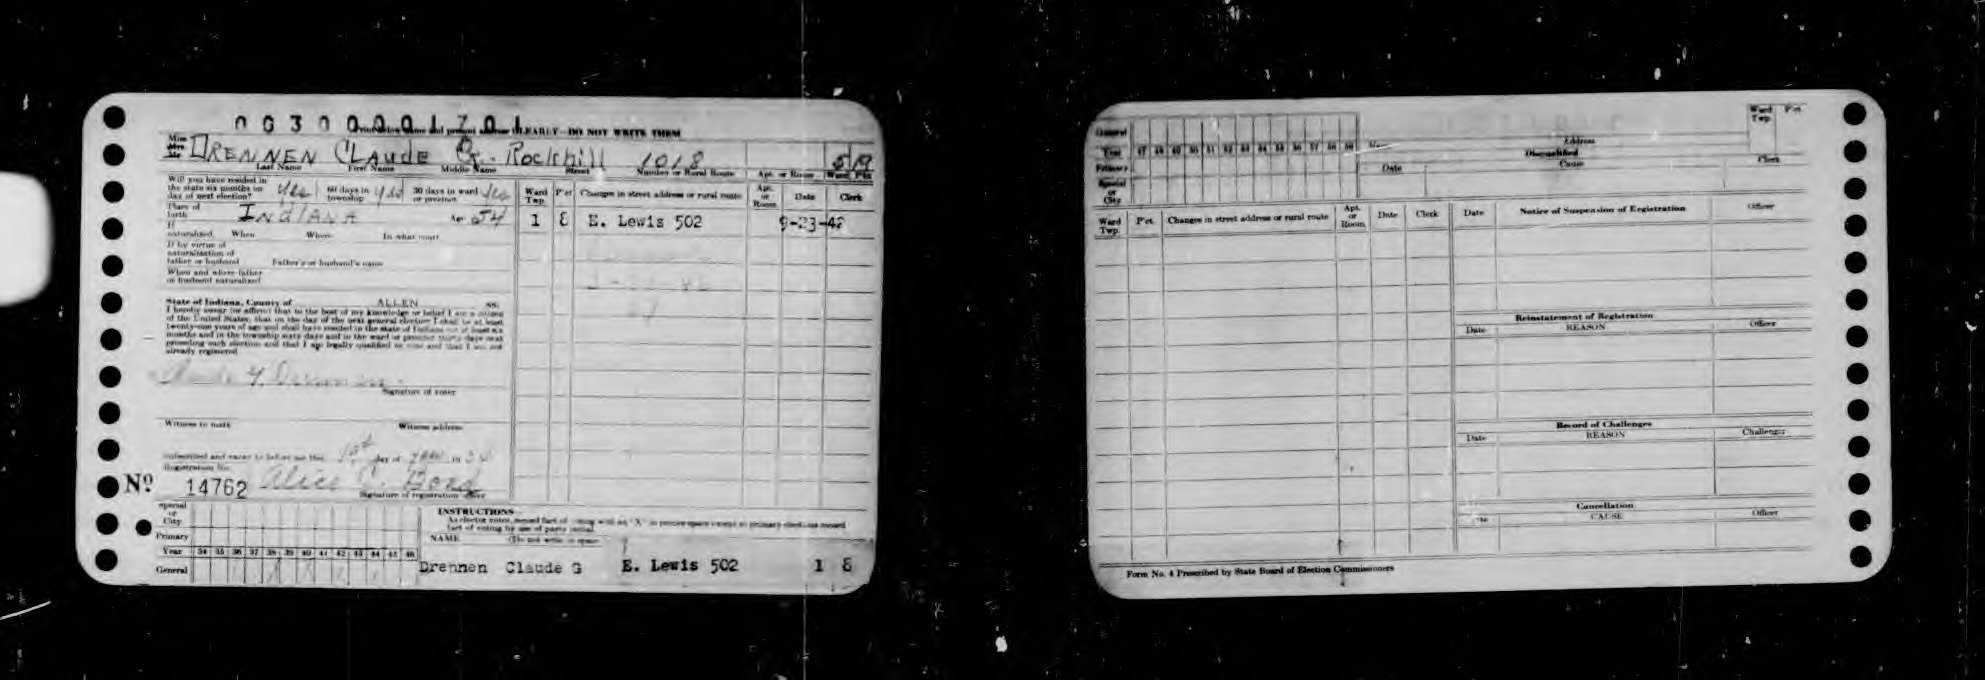 0030000 1701
Print below name and present address CLEARLY—DO NOT WRITE THEM
Miss
Mrs.
Mr. DRENNEN CLAUDE G. Rockhill 1018 5 19
Last Name First Name Middle Name Street Number or Rural Route Apt. or Room Ward Pct
Will you have resided in
the state six months on
day of next election? Yes 60 days in
township Yes 30 days in ward
or precinct Yes
Place of
birth INDIANA Age 54
If
naturalized, When Where In what court
If by virtue of
naturalization of
father or husband Father's or husband's name
When and where father
or husband naturalized?
State of Indiana, County of ALLEN ss.
I hereby swear (or affirm) that to the best of my knowledge or belief I am a citizen
of the United States; that on the day of the next general election I shall be at least
twenty-one years of age and shall have resided in the state of Indiana at least six
months and in the township sixty days and in the ward or precinct thirty days next
preceding such election and that I am legally qualified to vote and that I am not
already registered
Claude G. Drennen
Signature of voter
Witness to mark Witness address
Subscribed and sworn to before me this day of
Registration No.
No 14762 Alice C. Bond
Signature of registration officer
Ward
Twp. P'ct Changes in street address or rural route Apt.
or
Room Date Clerk
1 8 E. Lewis 502 9-23-42
Special
or
City
Primary
Year 34 35 36 37 38 39 40 41 42 43 44 45 46
General
INSTRUCTIONS
NAME (Do not write in space
Drennen Claude G E. Lewis 502 1 8
General
Year 47 48 49 50 51 52 53 54 55 56 57 58 59
Primary
Special
or
City
Name Address Ward
Twp. P'ct
Disqualified
Date Cause Clerk
Ward
Twp. P'ct. Changes in street address or rural route Apt.
or
Room Date Clerk
Date Notice of Suspension of Registration Officer
Reinstatement of Registration
Date REASON Officer
Record of Challenges
Date REASON Challenger
Cancellation
CAUSE Officer
Form No. 4 Prescribed by State Board of Election Commissioners